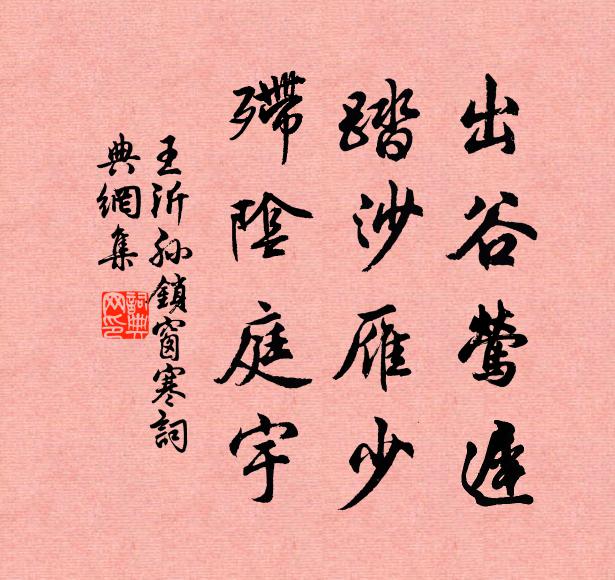 出谷鶯遲
踏沙雁少
殢陰庭宇
王沂孙鎖窗寒詞
典網集
詞典網印